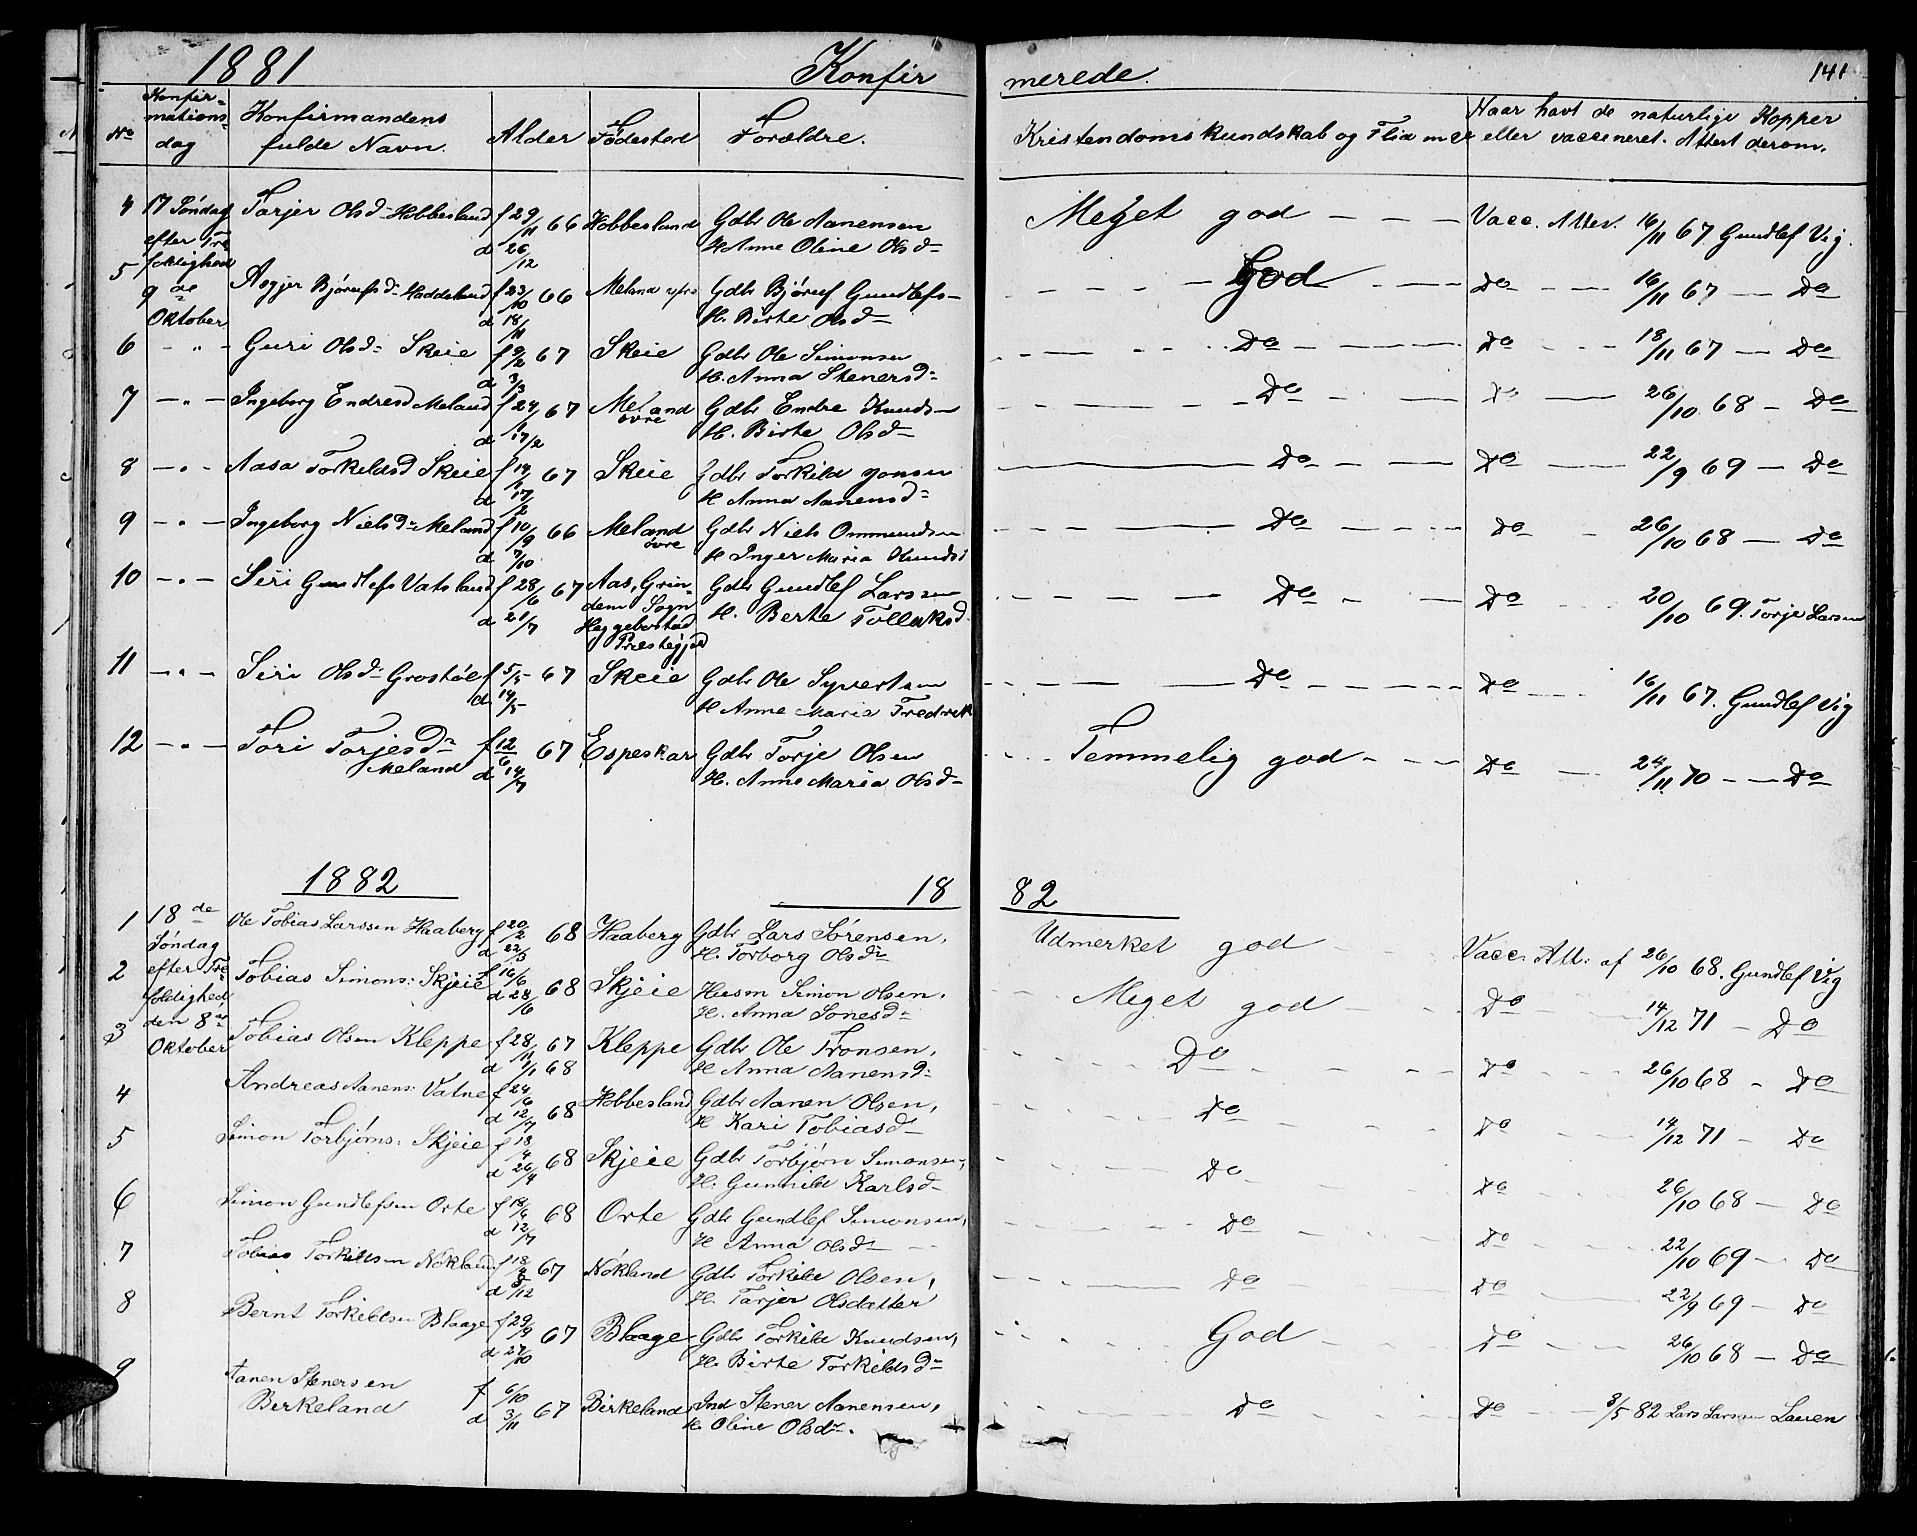 1881 Konfir merede. 141
No Konfirmations dag Konfirmandens fulde Navn. Alder Fødested Forældre. Kristendomskundskab og Flid m.v. Naar havt de naturlige Kopper eller vaccineret. Attest derom.
4 17 Søndag Tarjer Olsd- Hobbesland f 29/11 66 Hobbesland Gdbr Ole Aanensen Meget god Vacc. Attes. 16/11 67 Gundlef Vig.
efter Tre d 26/12 H Anne Oline Olsd
foldighed
5 9de Asgjer Bjørufsd Haddeland f 23/10 66 Meland Gdbr Bjøruf Gundlefs God Do 16/11 67 Do
Oktober d 18/11 H. Birte Olsd
6 - " - Guri Olsd Skeie f 9/2 67 Skeie Gdbr Ole Simonsen Do Do 18/11 67 Do
d 3/3 H. Anna Stenersd
7 - " - Ingeborg Endresd Meland f 24/1 67 Meland øvre Gdbr Endre Knuds Do Do 26/10 68 - Do
d 17/2 H. Birte Olsd
8 - " - Aasa Torkeldsd Skeie f 14/1 67 Skeie Gdbr Torkild Jonsen Do Do 22/9 69 - Do
d 17/2 H Anna Aanensd
9 - " - Ingeborg Nielsd Meland f 10/9 66 Meland øvre Gdbr Niels Ommundsen Do Do 26/10 68 - Do
d 7/10 H Inger Maria
10 - " - Siri Gundlefs Vatsland f 28/6 67 Aas, Grin- Gdbr Gundlef Larsen Do Do 20/10 69. Torje Larsen
d 21/7 dem Sogn H. Berte Tollaksd
Heggebostad
Præstegjeld
11 - " - Siri Olsd Grostøl f 5/5 67 Skeie Gdbr Ole Syvertsen Do Do 16/11 67. Gundlef Vig
d 14/5 H Anne Maria Fredrek
12 - " - Tori Torjesd f 12/6 67 Espeskar Gdbr Torje Olsen Temmelig god Do 24/11 70 - Do
Meland d 14/7 H. Anne Maria Olsd
1882 18 82
1 18de Ole Tobias Larssen Haaberg f 20/2 68 Haaberg Gdbr Lars Sørensen, Udmerket god Vacc. Att: af 26/10 68. Gundlef Vig
Søndag d 22/3 H. Torborg Olsd
2 efter Tre Tobias Simons: Skjeie f 16/6 68 Skjeie Husm Simon Olsen. Meget god Do 14/12 71 - Do
foldighed d 28/6 H. Anna Jonesd
3 den 8de Tobias Olsen Kleppe f 28/11 67 Kleppe Gdbr Ole Tronsen, Do Do 26/10 68 - Do
Oktober d 7/1 68 H Anna Aanensd
4 Andreas Aanens: Vatne f 24/6 Hobbesland Gdbr Aanen Olsen, Do Do 14/12 71 - Do
d 12/7 68 H Kari Tobiasd
5 Simon Torbjørns: Skjeie f 18/4 68 Skjeie Gdbr Torbjørn Simonsen, Do Do 26/10 68 - Do
d 26/4 H. Gunnild Karlsd
6 Simon Gundlefsen Orte f 18/6 68 Orte Gdbr Gundlef Simonsen, Do Do 22/10 69 - Do
d 12/7 H Anna Olsd
7 Tobias Torkildsen Nøkland f 18/ 67 Nøkland Gdbr Torkild Olsen, Do Do 22/9 69 - Do
d /12 H. Tarjer Olsdatter
8 Bernt Torkildsen Blaage f 29/9 67 Blaage Gdbr Torkild Knudsen, God Do 26/10 68 - Do
d 27/10 H. Birte Torkildsd
9 Aanen Stenersen f 6/10 67 Birkeland Ind Stener Aanensen, Do Do 3/5 82 Lars Larsen Lauen
Birkeland d 3/11 H Oline Olsdr.